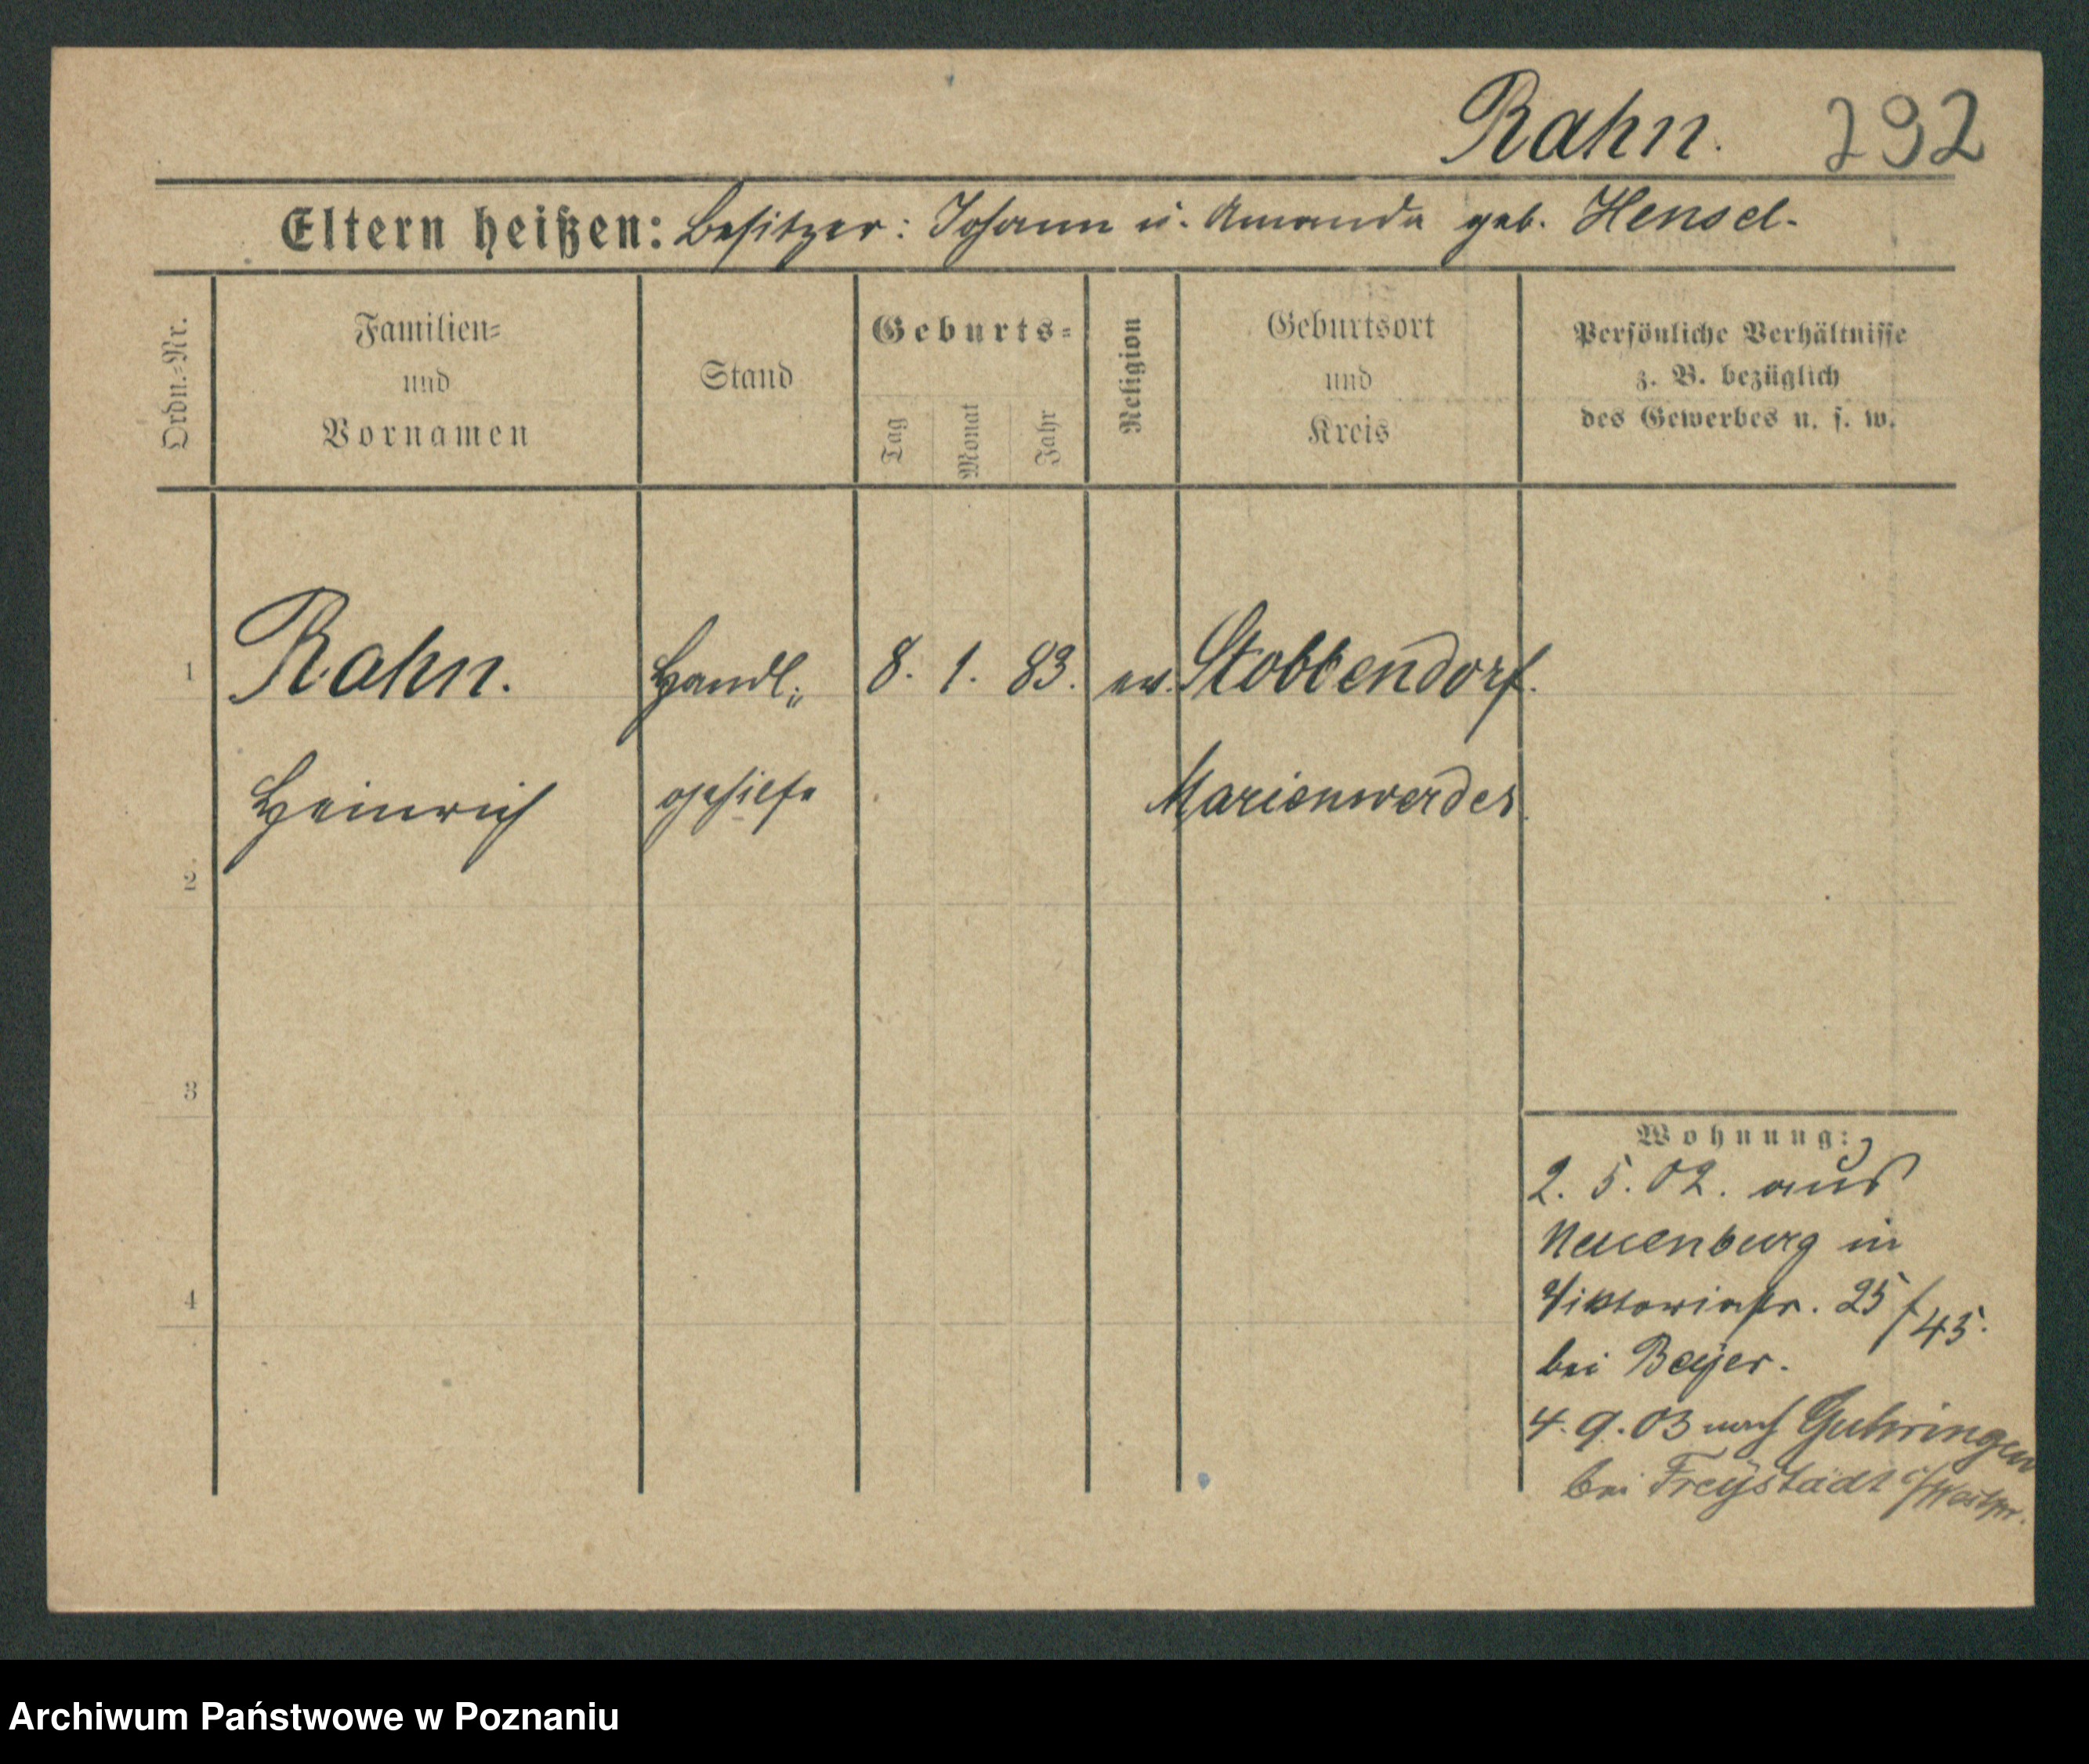 Rahn. 292
Eltern heißen: Besitzer: Johann u. Amanda geb. Hensel.
Ordn.=Nr.
Familien=
und
Vornamen
Stand
Geburts=
Tag
Monat
Jahr
Religion
Geburtsort
und
Kreis
Persönliche Verhältnisse
z. B. bezüglich
des Gewerbes u. s. w.
1 Rahn. Handl= 8. 1. 83. ev. Stobbendorf.
Heinrich gehilfe Marienwerder.
2.
3
4
Wohnung:
2. 5. 02. aus
Neuenburg in
Viktoriastr. 25 / 45.
bei Beyer.
4. 9. 03 nach Guhringen
bei Freystadt i/Westpr.
Archiwum Państwowe w Poznaniu